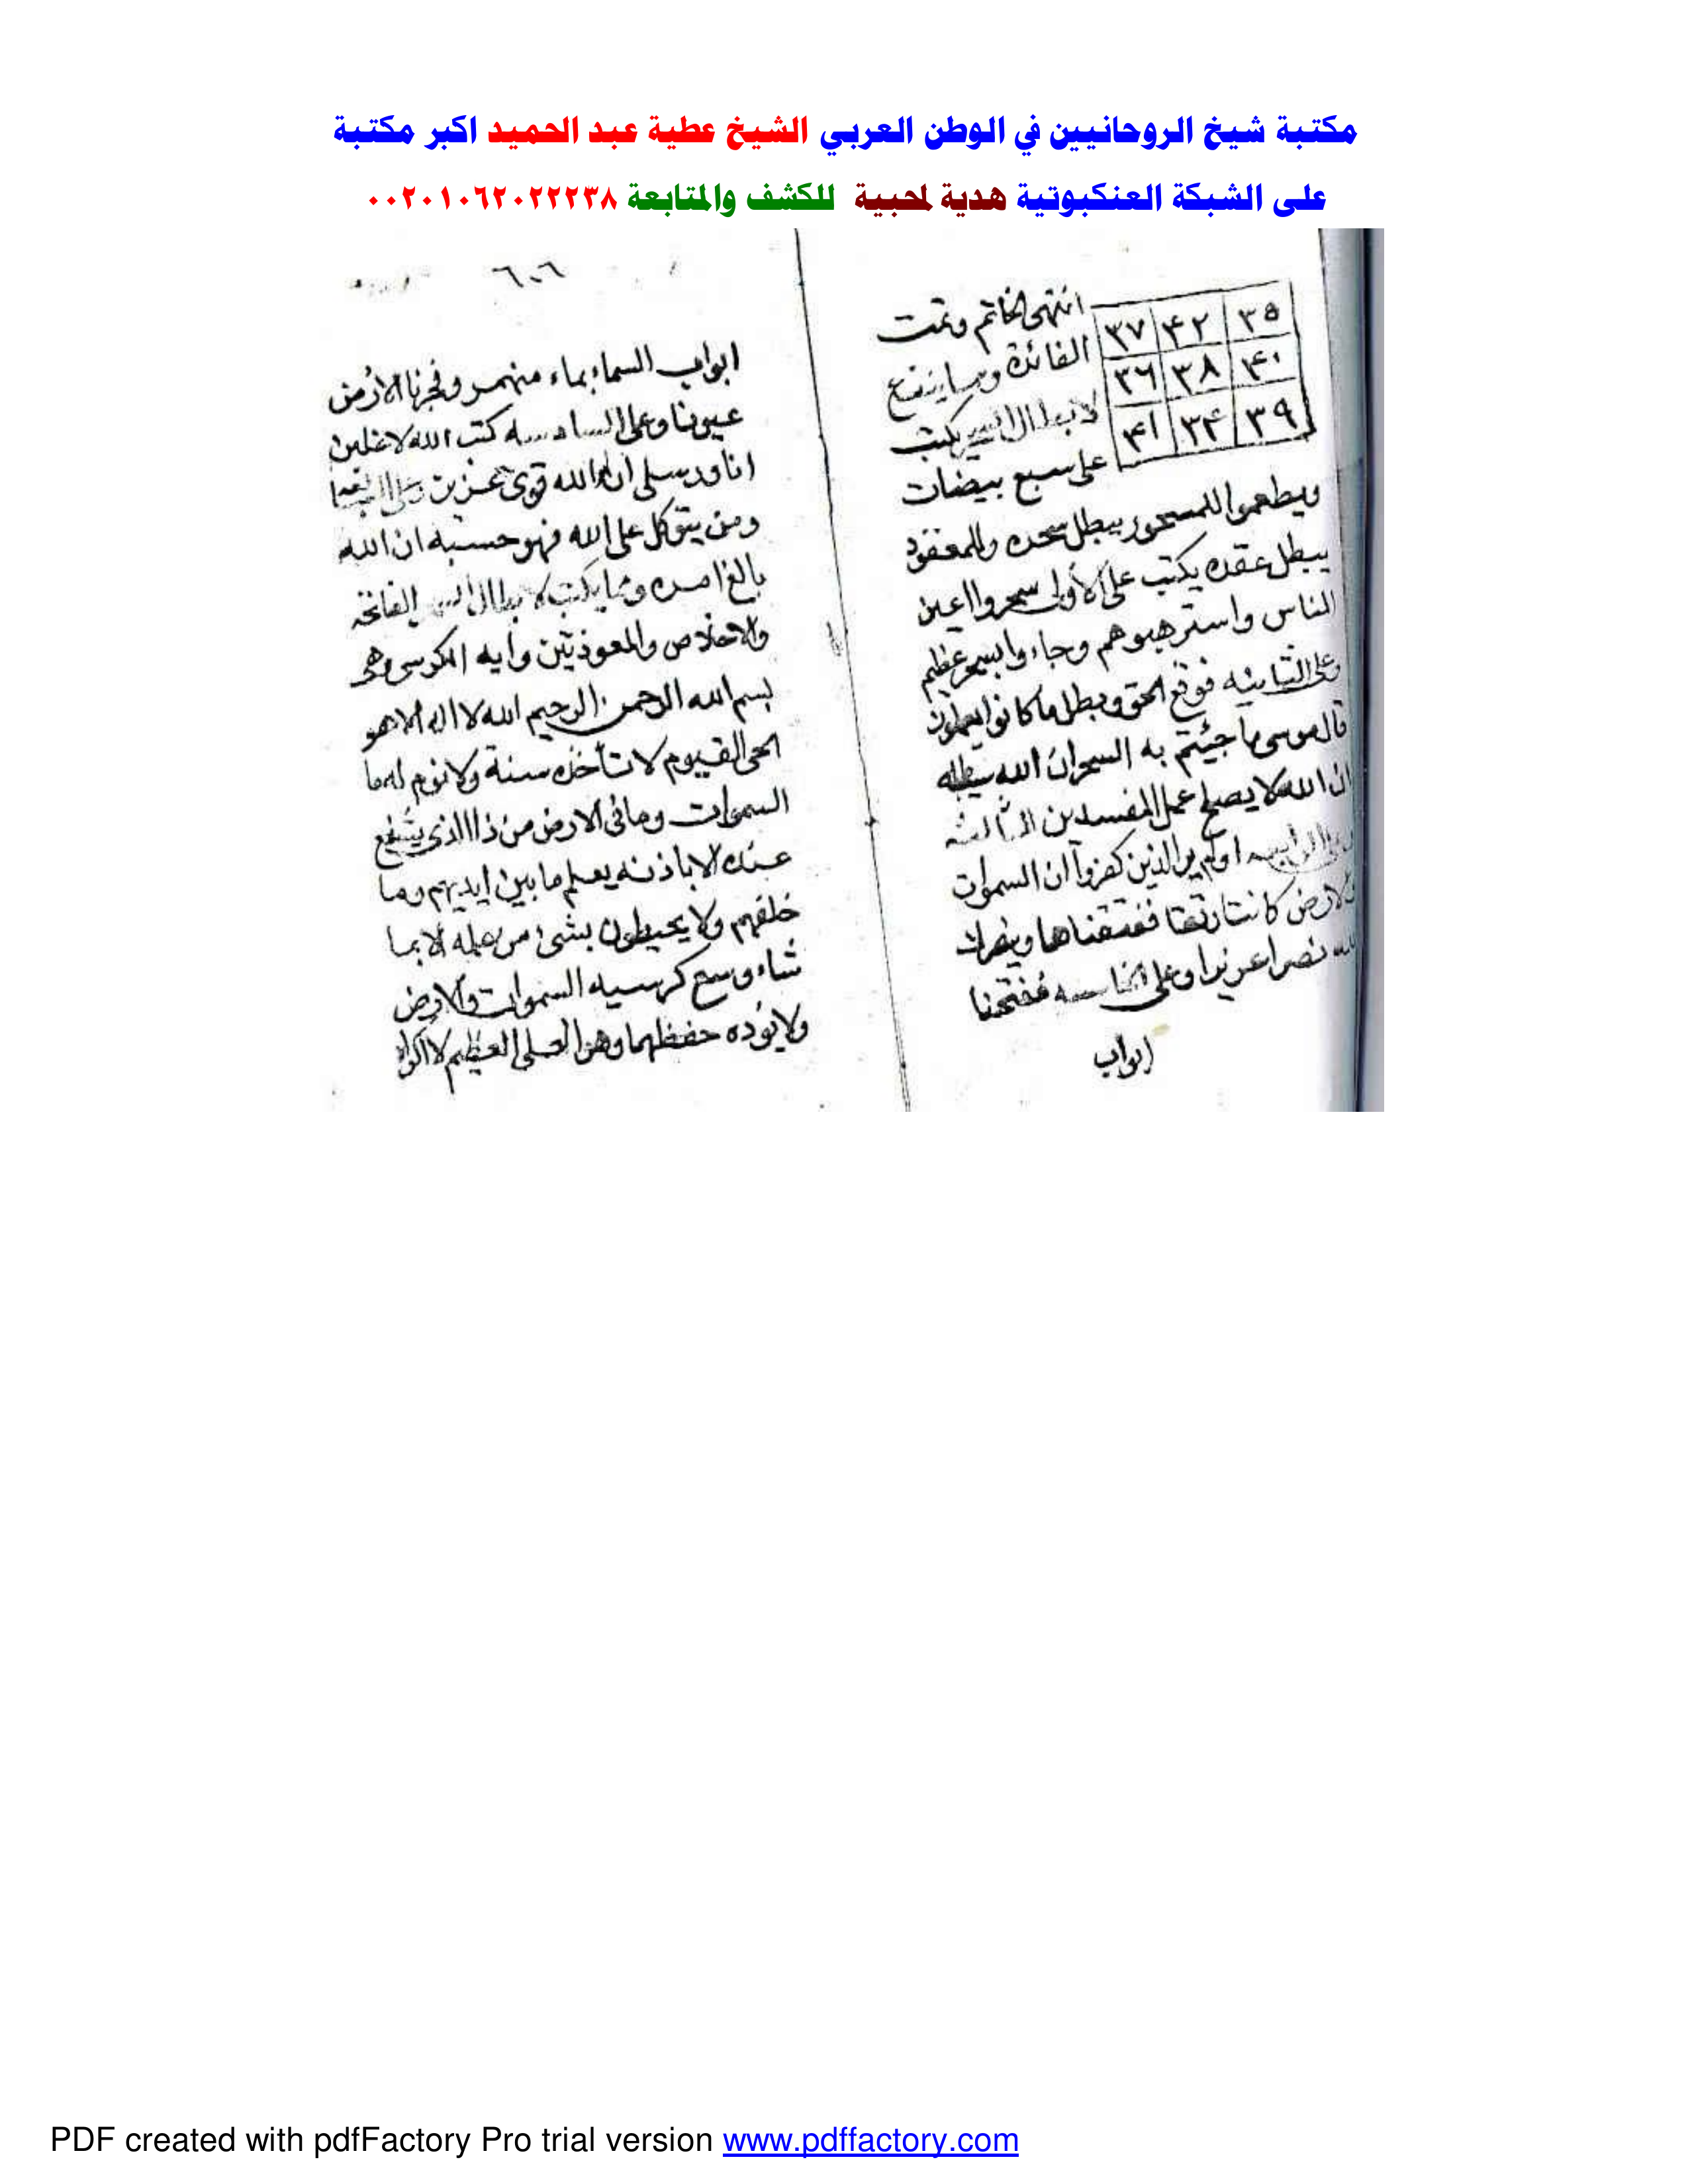 مكتبة شيخ الروحانيين في الوطن العربي الشيخ عطية عبد الحميد اكبر مكتبة
على الشبكة العنكبوتية هدية لمحبية للكشف والمتابعة ٠٠٢٠١٠٦٢٠٢٢٢٣٨
٣٧ ٤٢ ٣٥
٣٦ ٣٨ ٤٠
٤١ ٣٤ ٣٩
انتهى الخاتم وتمت
الفائدة ومما ينفع
لابطال السحر يكتب
على سبع بيضات
ويطعموا للمسحور يبطل سحره وللمعقود
يبطل عقده يكتب على الأولى سحروا اعين
الناس واسترهبوهم وجاءوا بسحر عظيم
وعلى الثانية فوقع الحق وبطل ما كانوا يعملون
قال موسى ما جئتم به السحر ان الله سيبطله
ان الله لا يصلح عمل المفسدين الثالثة
الرابعة اولم ير الذين كفروا آن السموات
والارض كانتا رتقا ففتقناهما وينصرك
الله نصرا عزيزا وعلى الخامسه ففتحنا
ابواب
٦٠٦
ابواب السماء بماء منهمر وفجرنا الأرض
عيونا وعلى السادسه كتب الله لاغلبن
انا ورسلى ان الله قوى عزيز
ومن يتوكل على الله فهو حسبه ان الله
بالغ امره ومما يكتب لابطال السحر الفاتحة
والاخلاص والمعوذتين وأيه الكرسى وهى
بسم الله الرحمن الرحيم الله لا اله الا هو
الحى القيوم لا تأخذه سنة ولا نوم له ما
السموات وما فى الارض من ذا الذى يشفع
عنده الا باذنه يعلم ما بين ايديهم وما
خلفهم ولا يحيطون بشئ من علمه الا بما
شاء وسع كرسيه السموات والارض
ولا يؤده حفظهما وهو العلى العظيم لا اكراه
PDF created with pdfFactory Pro trial version www.pdffactory.com